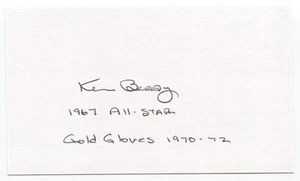 Ken Berry
1967 All-Star
Gold Gloves 1970-72